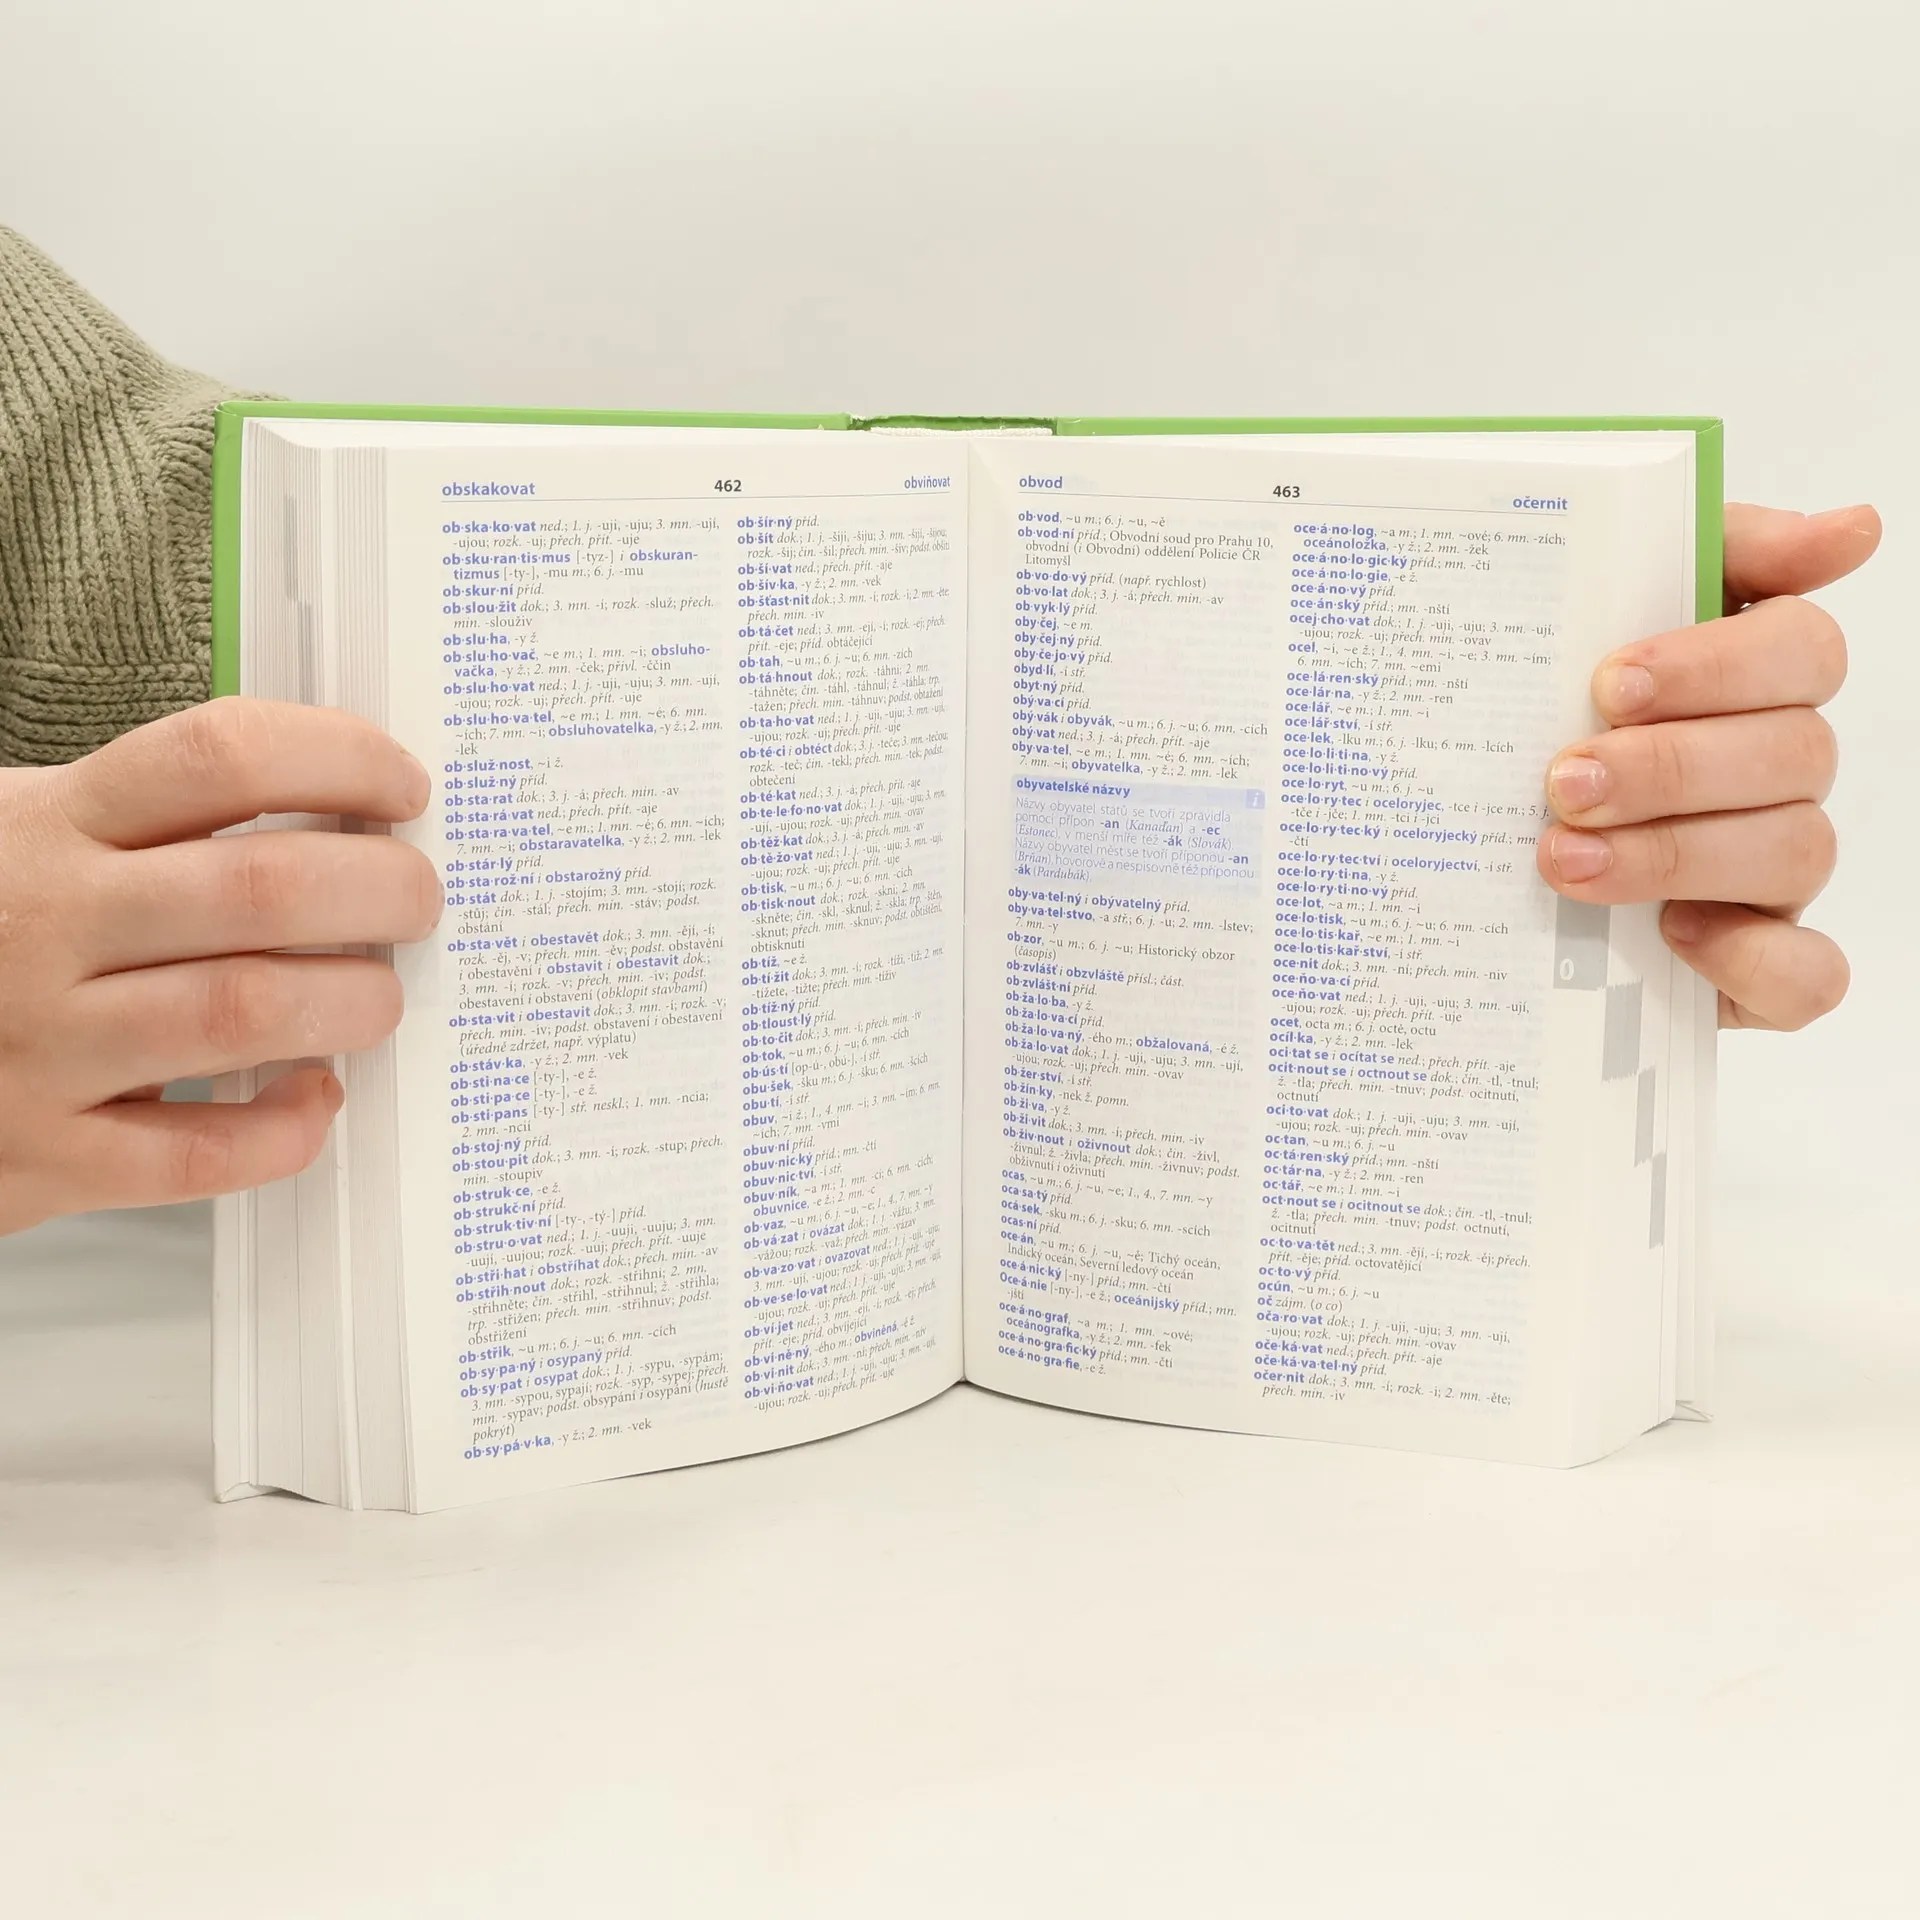 obskakovat 462 obviňovat
ob·ska·ko·vat ned.; 1. j. -uji, -uju; 3. mn. -ují,
-ujou; rozk. -uj; přech. přít. -uje
ob·sku·ran·tis·mus [-tyz-] i obskuran-
tizmus [-ty-], -mu m.; 6. j. -mu
ob·skur·ní příd.
ob·slou·žit dok.; 3. mn. -í; rozk. -služ; přech.
min. -slouživ
ob·slu·ha, -y ž.
ob·slu·ho·vač, ~e m.; 1. mn. ~i; obsluho-
vačka, -y ž.; 2. mn. -ček; přivl. -ččin
ob·slu·ho·vat ned.; 1. j. -uji, -uju; 3. mn. -ují,
-ujou; rozk. -uj; přech. přít. -uje
ob·slu·ho·va·tel, ~e m.; 1. mn. ~é; 6. mn.
~ích; 7. mn. ~i; obsluhovatelka, -y ž.; 2. mn.
-lek
ob·služ·nost, ~i ž.
ob·služ·ný příd.
ob·sta·rat dok.; 3. j. -á; přech. min. -av
ob·sta·rá·vat ned.; přech. přít. -aje
ob·sta·ra·va·tel, ~e m.; 1. mn. ~é; 6. mn. ~ích;
7. mn. ~i; obstaravatelka, -y ž.; 2. mn. -lek
ob·stár·lý příd.
ob·sta·rož·ní i obstarožný příd.
ob·stát dok.; 1. j. -stojím; 3. mn. -stojí; rozk.
-stůj; čin. -stál; přech. min. -stáv; podst.
obstání
ob·sta·vět i obestavět dok.; 3. mn. -ějí, -í;
rozk. -ěj, -v; přech. min. -ěv; podst. obstavění
i obestavění i obstavit i obestavit dok.;
3. mn. -í; rozk. -v; přech. min. -iv; podst.
obestavení i obstavení (obklopit stavbami)
ob·sta·vit i obestavit dok.; 3. mn. -í; rozk. -v;
přech. min. -iv; podst. obstavení i obestavení
(úředně zdržet, např. výplatu)
ob·stáv·ka, -y ž.; 2. mn. -vek
ob·sti·na·ce [-ty-], -e ž.
ob·sti·pa·ce [-ty-], -e ž.
ob·sti·pans [-ty-] stř. neskl.; 1. mn. -ncia;
2. mn. -ncií
ob·stoj·ný příd.
ob·stou·pit dok.; 3. mn. -í; rozk. -stup; přech.
min. -stoupiv
ob·struk·ce, -e ž.
ob·strukč·ní příd.
ob·struk·tiv·ní [-ty-, -tý-] příd.
ob·stru·o·vat ned.; 1. j. -uuji, -uuju; 3. mn.
-uují, -uujou; rozk. -uuj; přech. přít. -uuje
ob·stří·hat i obstříhat dok.; přech. min. -av
ob·střih·nout dok.; rozk. -střihni; 2. mn.
-střihněte; čin. -střihl, -střihnul; ž. -střihla;
trp. -střižen; přech. min. -střihnuv; podst.
obstřižení
ob·střik, ~u m.; 6. j. ~u; 6. mn. -cích
ob·sy·pa·ný i osypaný příd.
ob·sy·pat i osypat dok.; 1. j. -sypu, -sypám;
3. mn. -sypou, sypají; rozk. -syp, -sypej; přech.
min. -sypav; podst. obsypání i osypání (hustě
pokrýt)
ob·sy·pá·v·ka, -y ž.; 2. mn. -vek
ob·šír·ný příd.
ob·šít dok.; 1. j. -šiji, -šiju; 3. mn. -šijí, -šijou;
rozk. -šij; čin. -šil; přech. min. -šiv; podst. obšití
ob·ší·vat ned.; přech. přít. -aje
ob·šív·ka, -y ž.; 2. mn. -vek
ob·šťast·nit dok.; 3. mn. -í; rozk. -i; 2. mn. -ěte;
přech. min. -iv
ob·tá·čet ned.; 3. mn. -ejí, -í; rozk. -ej; přech.
přít. -eje; příd. obtáčející
ob·tah, ~u m.; 6. j. ~u; 6. mn. -zích
ob·táh·nout dok.; rozk. -táhni; 2. mn.
-táhněte; čin. -táhl, -táhnul; ž. -táhla; trp.
-tažen; přech. min. -táhnuv; podst. obtažení
ob·ta·ho·vat ned.; 1. j. -uji, -uju; 3. mn. -ují,
-ujou; rozk. -uj; přech. přít. -uje
ob·té·ci i obtéct dok.; 3. j. -teče; 3. mn. -tečou;
rozk. -teč; čin. -tekl; přech. min. -tek; podst.
obtečení
ob·té·kat ned.; 3. j. -á; přech. přít. -aje
ob·te·le·fo·no·vat dok.; 1. j. -uji, -uju; 3. mn.
-ují, -ujou; rozk. -uj; přech. min. -ovav
ob·těž·kat dok.; 3. j. -á; přech. min. -av
ob·tě·žo·vat ned.; 1. j. -uji, -uju; 3. mn. -ují,
-ujou; rozk. -uj; přech. přít. -uje
ob·tisk, ~u m.; 6. j. ~u; 6. mn. -cích
ob·tisk·nout dok.; rozk. -skni; 2. mn.
-skněte; čin. -skl, -sknul; ž. -skla; trp. -štěn,
-sknut; přech. min. -sknuv; podst. obtištění,
obtisknutí
ob·tíž, ~e ž.
ob·tí·žit dok.; 3. mn. -í; rozk. -tiži, -tiž; 2. mn.
-tižete, -tižte; přech. min. -tíživ
ob·tíž·ný příd.
ob·tloust·lý příd.
ob·to·čit dok.; 3. mn. -í; přech. min. -iv
ob·tok, ~u m.; 6. j. ~u; 6. mn. -cích
ob·ús·tí [op-ú-, obú-], -í stř.
obu·šek, -šku m.; 6. j. -šku; 6. mn. -šcích
obu·tí, -í stř.
obuv, ~i ž.; 1., 4. mn. ~i; 3. mn. ~ím; 6. mn.
~ích; 7. mn. -vmi
obuv·ní příd.
obuv·nic·ký příd.; mn. -čtí
obuv·nic·tví, -í stř.
obuv·ník, ~a m.; 1. mn. -ci; 6. mn. -cích;
obuvnice, -e ž.; 2. mn. -c
ob·vaz, ~u m.; 6. j. ~u, ~e; 1., 4., 7. mn. ~y
ob·vá·zat i ovázat dok.; 1. j. -vážu; 3. mn.
-vážou; rozk. -važ; přech. min. -vázav
ob·va·zo·vat i ovazovat ned.; 1. j. -uji, -uju;
3. mn. -ují, -ujou; rozk. -uj; přech. přít. -uje
ob·ve·se·lo·vat ned.; 1. j. -uji, -uju; 3. mn. -ují,
-ujou; rozk. -uj; přech. přít. -uje
ob·ví·jet ned.; 3. mn. -ejí, -í; rozk. -ej; přech.
přít. -eje; příd. obvíjející
ob·vi·ně·ný, -ého m.; obviněná, -é ž.
ob·vi·nit dok.; 3. mn. -ní; přech. min. -niv
ob·vi·ňo·vat ned.; 1. j. -uji, -uju; 3. mn. -ují,
-ujou; rozk. -uj; přech. přít. -uje
obvod 463 očernit
ob·vod, ~u m.; 6. j. ~u, ~ě
ob·vod·ní příd.; Obvodní soud pro Prahu 10,
obvodní (i Obvodní) oddělení Policie ČR
Litomyšl
ob·vo·do·vý příd. (např. rychlost)
ob·vo·lat dok.; 3. j. -á; přech. min. -av
ob·vyk·lý příd.
oby·čej, ~e m.
oby·čej·ný příd.
oby·če·jo·vý příd.
obyd·lí, -í stř.
obyt·ný příd.
obý·va·cí příd.
obý·vák i obyvák, ~u m.; 6. j. ~u; 6. mn. -cích
obý·vat ned.; 3. j. -á; přech. přít. -aje
oby·va·tel, ~e m.; 1. mn. ~é; 6. mn. ~ích;
7. mn. ~i; obyvatelka, -y ž.; 2. mn. -lek
obyvatelské názvy i
Názvy obyvatel států se tvoří zpravidla
pomocí přípon -an (Kanaďan) a -ec
(Estonec), v menší míře též -ák (Slovák).
Názvy obyvatel měst se tvoří příponou -an
(Brňan), hovorově a nespisovně též příponou
-ák (Pardubák).
oby·va·tel·ný i obývatelný příd.
oby·va·tel·stvo, -a stř.; 6. j. -u; 2. mn. -lstev;
7. mn. -y
ob·zor, ~u m.; 6. j. ~u; Historický obzor
(časopis)
ob·zvlášť i obzvláště přísl.; část.
ob·zvlášt·ní příd.
ob·ža·lo·ba, -y ž.
ob·ža·lo·va·cí příd.
ob·ža·lo·va·ný, -ého m.; obžalovaná, -é ž.
ob·ža·lo·vat dok.; 1. j. -uji, -uju; 3. mn. -ují,
-ujou; rozk. -uj; přech. min. -ovav
ob·žer·ství, -í stř.
ob·žín·ky, -nek ž. pomn.
ob·ži·va, -y ž.
ob·ži·vit dok.; 3. mn. -í; přech. min. -iv
ob·živ·nout i oživnout dok.; čin. -živl,
-živnul; ž. -živla; přech. min. -živnuv; podst.
obživnutí i oživnutí
ocas, ~u m.; 6. j. ~u, ~e; 1., 4., 7. mn. ~y
oca·sa·tý příd.
ocá·sek, -sku m.; 6. j. -sku; 6. mn. -scích
ocas·ní příd.
oce·án, ~u m.; 6. j. ~u, ~ě; Tichý oceán,
Indický oceán, Severní ledový oceán
oce·á·nic·ký [-ny-] příd.; mn. -čtí
Oce·á·nie [-ny-], -e ž.; oceánijský příd.; mn.
-jští
oce·á·no·graf, ~a m.; 1. mn. ~ové;
oceánografka, -y ž.; 2. mn. -fek
oce·á·no·gra·fic·ký příd.; mn. -čtí
oce·á·no·gra·fie, -e ž.
oce·á·no·log, ~a m.; 1. mn. ~ové; 6. mn. -zích;
oceánoložka, -y ž.; 2. mn. -žek
oce·á·no·lo·gic·ký příd.; mn. -čtí
oce·á·no·lo·gie, -e ž.
oce·á·no·vý příd.
oce·án·ský příd.; mn. -nští
ocej·cho·vat dok.; 1. j. -uji, -uju; 3. mn. -ují,
-ujou; rozk. -uj; přech. min. -ovav
ocel, ~i, ~e ž.; 1., 4. mn. ~i, ~e; 3. mn. ~ím;
6. mn. ~ích; 7. mn. ~emi
oce·lá·ren·ský příd.; mn. -nští
oce·lár·na, -y ž.; 2. mn. -ren
oce·lář, ~e m.; 1. mn. ~i
oce·lář·ství, -í stř.
oce·lek, -lku m.; 6. j. -lku; 6. mn. -lcích
oce·lo·li·ti·na, -y ž.
oce·lo·li·ti·no·vý příd.
oce·lo·ryt, ~u m.; 6. j. ~u
oce·lo·ry·tec i oceloryjec, -tce i -jce m.; 5. j.
-tče i -jče; 1. mn. -tci i -jci
oce·lo·ry·tec·ký i oceloryjecký příd.; mn.
-čtí
oce·lo·ry·tec·tví i oceloryjectví, -í stř.
oce·lo·ry·ti·na, -y ž.
oce·lo·ry·ti·no·vý příd.
oce·lot, ~a m.; 1. mn. ~i
oce·lo·tisk, ~u m.; 6. j. ~u; 6. mn. -cích
oce·lo·tis·kař, ~e m.; 1. mn. ~i
oce·lo·tis·kař·ství, -í stř.
oce·nit dok.; 3. mn. -ní; přech. min. -niv
oce·ňo·va·cí příd.
oce·ňo·vat ned.; 1. j. -uji, -uju; 3. mn. -ují,
-ujou; rozk. -uj; přech. přít. -uje
ocet, octa m.; 6. j. octě, octu
ocíl·ka, -y ž.; 2. mn. -lek
oci·tat se i ocítat se ned.; přech. přít. -aje
ocit·nout se i octnout se dok.; čin. -tl, -tnul;
ž. -tla; přech. min. -tnuv; podst. ocitnutí,
octnutí
oci·to·vat dok.; 1. j. -uji, -uju; 3. mn. -ují,
-ujou; rozk. -uj; přech. min. -ovav
oc·tan, ~u m.; 6. j. ~u
oc·tá·ren·ský příd.; mn. -nští
oc·tár·na, -y ž.; 2. mn. -ren
oc·tář, ~e m.; 1. mn. ~i
oct·nout se i ocitnout se dok.; čin. -tl, -tnul;
ž. -tla; přech. min. -tnuv; podst. octnutí,
ocitnutí
oc·to·va·tět ned.; 3. mn. -ějí, -í; rozk. -ěj; přech.
přít. -ěje; příd. octovatějící
oc·to·vý příd.
ocún, ~u m.; 6. j. ~u
oč zájm. (o co)
oča·ro·vat dok.; 1. j. -uji, -uju; 3. mn. -ují,
-ujou; rozk. -uj; přech. min. -ovav
oče·ká·vat ned.; přech. přít. -aje
oče·ká·va·tel·ný příd.
očer·nit dok.; 3. mn. -í; rozk. -i; 2. mn. -ěte;
přech. min. -iv
O